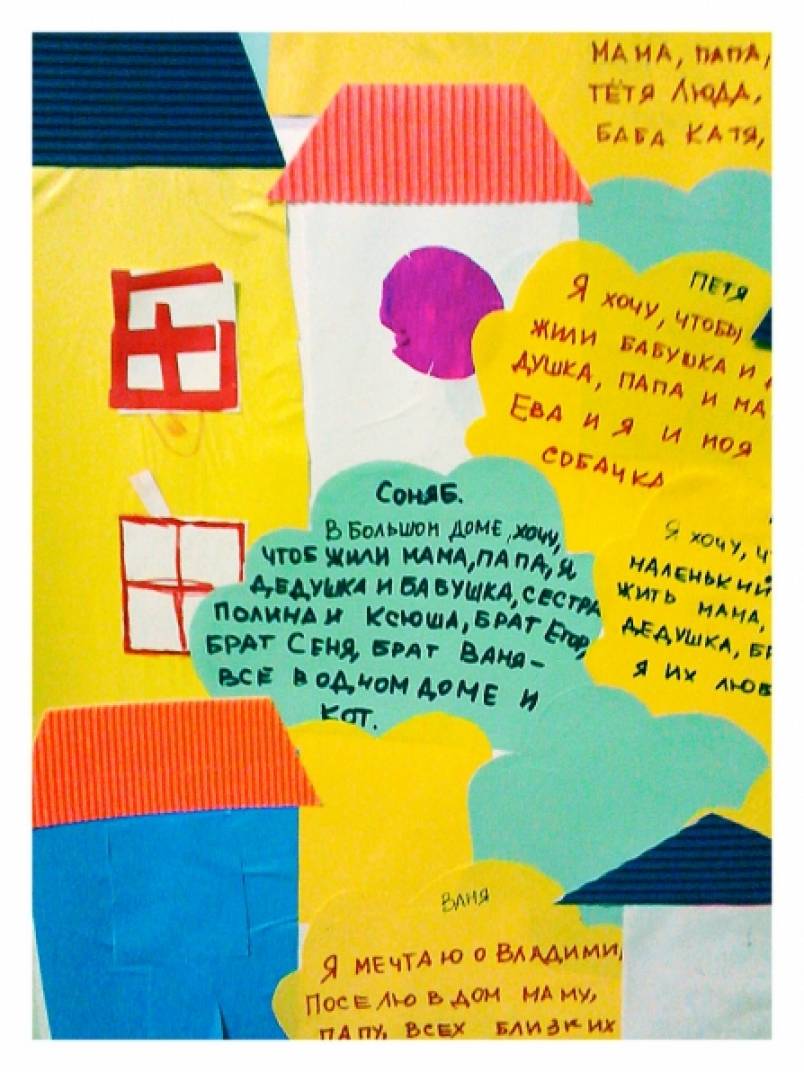 МАМА, ПАПА,
ТЁТЯ ЛЮДА,
БАБА КАТЯ,
ПЕТЯ
Я ХОЧУ, ЧТОБЫ
ЖИЛИ БАБУШКА И
ДУШКА, ПАПА И МА
ЕВА И Я И МОЯ
СОБАЧКА
СОНЯ Б.
В БОЛЬШОМ ДОМЕ, ХОЧУ,
ЧТОБ ЖИЛИ МАМА, ПАПА, Я,
ДЕДУШКА И БАБУШКА, СЕСТРА
ПОЛИНА И КСЮША, БРАТ ЕГОР,
БРАТ СЕНЯ, БРАТ ВАНЯ –
ВСЕ В ОДНОМ ДОМЕ И
КОТ.
Я ХОЧУ, Ч
МАЛЕНЬКИЙ
ЖИТЬ МАМА,
ДЕДУШКА, БР
Я ИХ ЛЮБ
ВАНЯ
Я МЕЧТАЮ О ВЛАДИМИ
ПОСЕЛЮ В ДОМ МАМУ,
ПАПУ, ВСЕХ БЛИЗКИХ